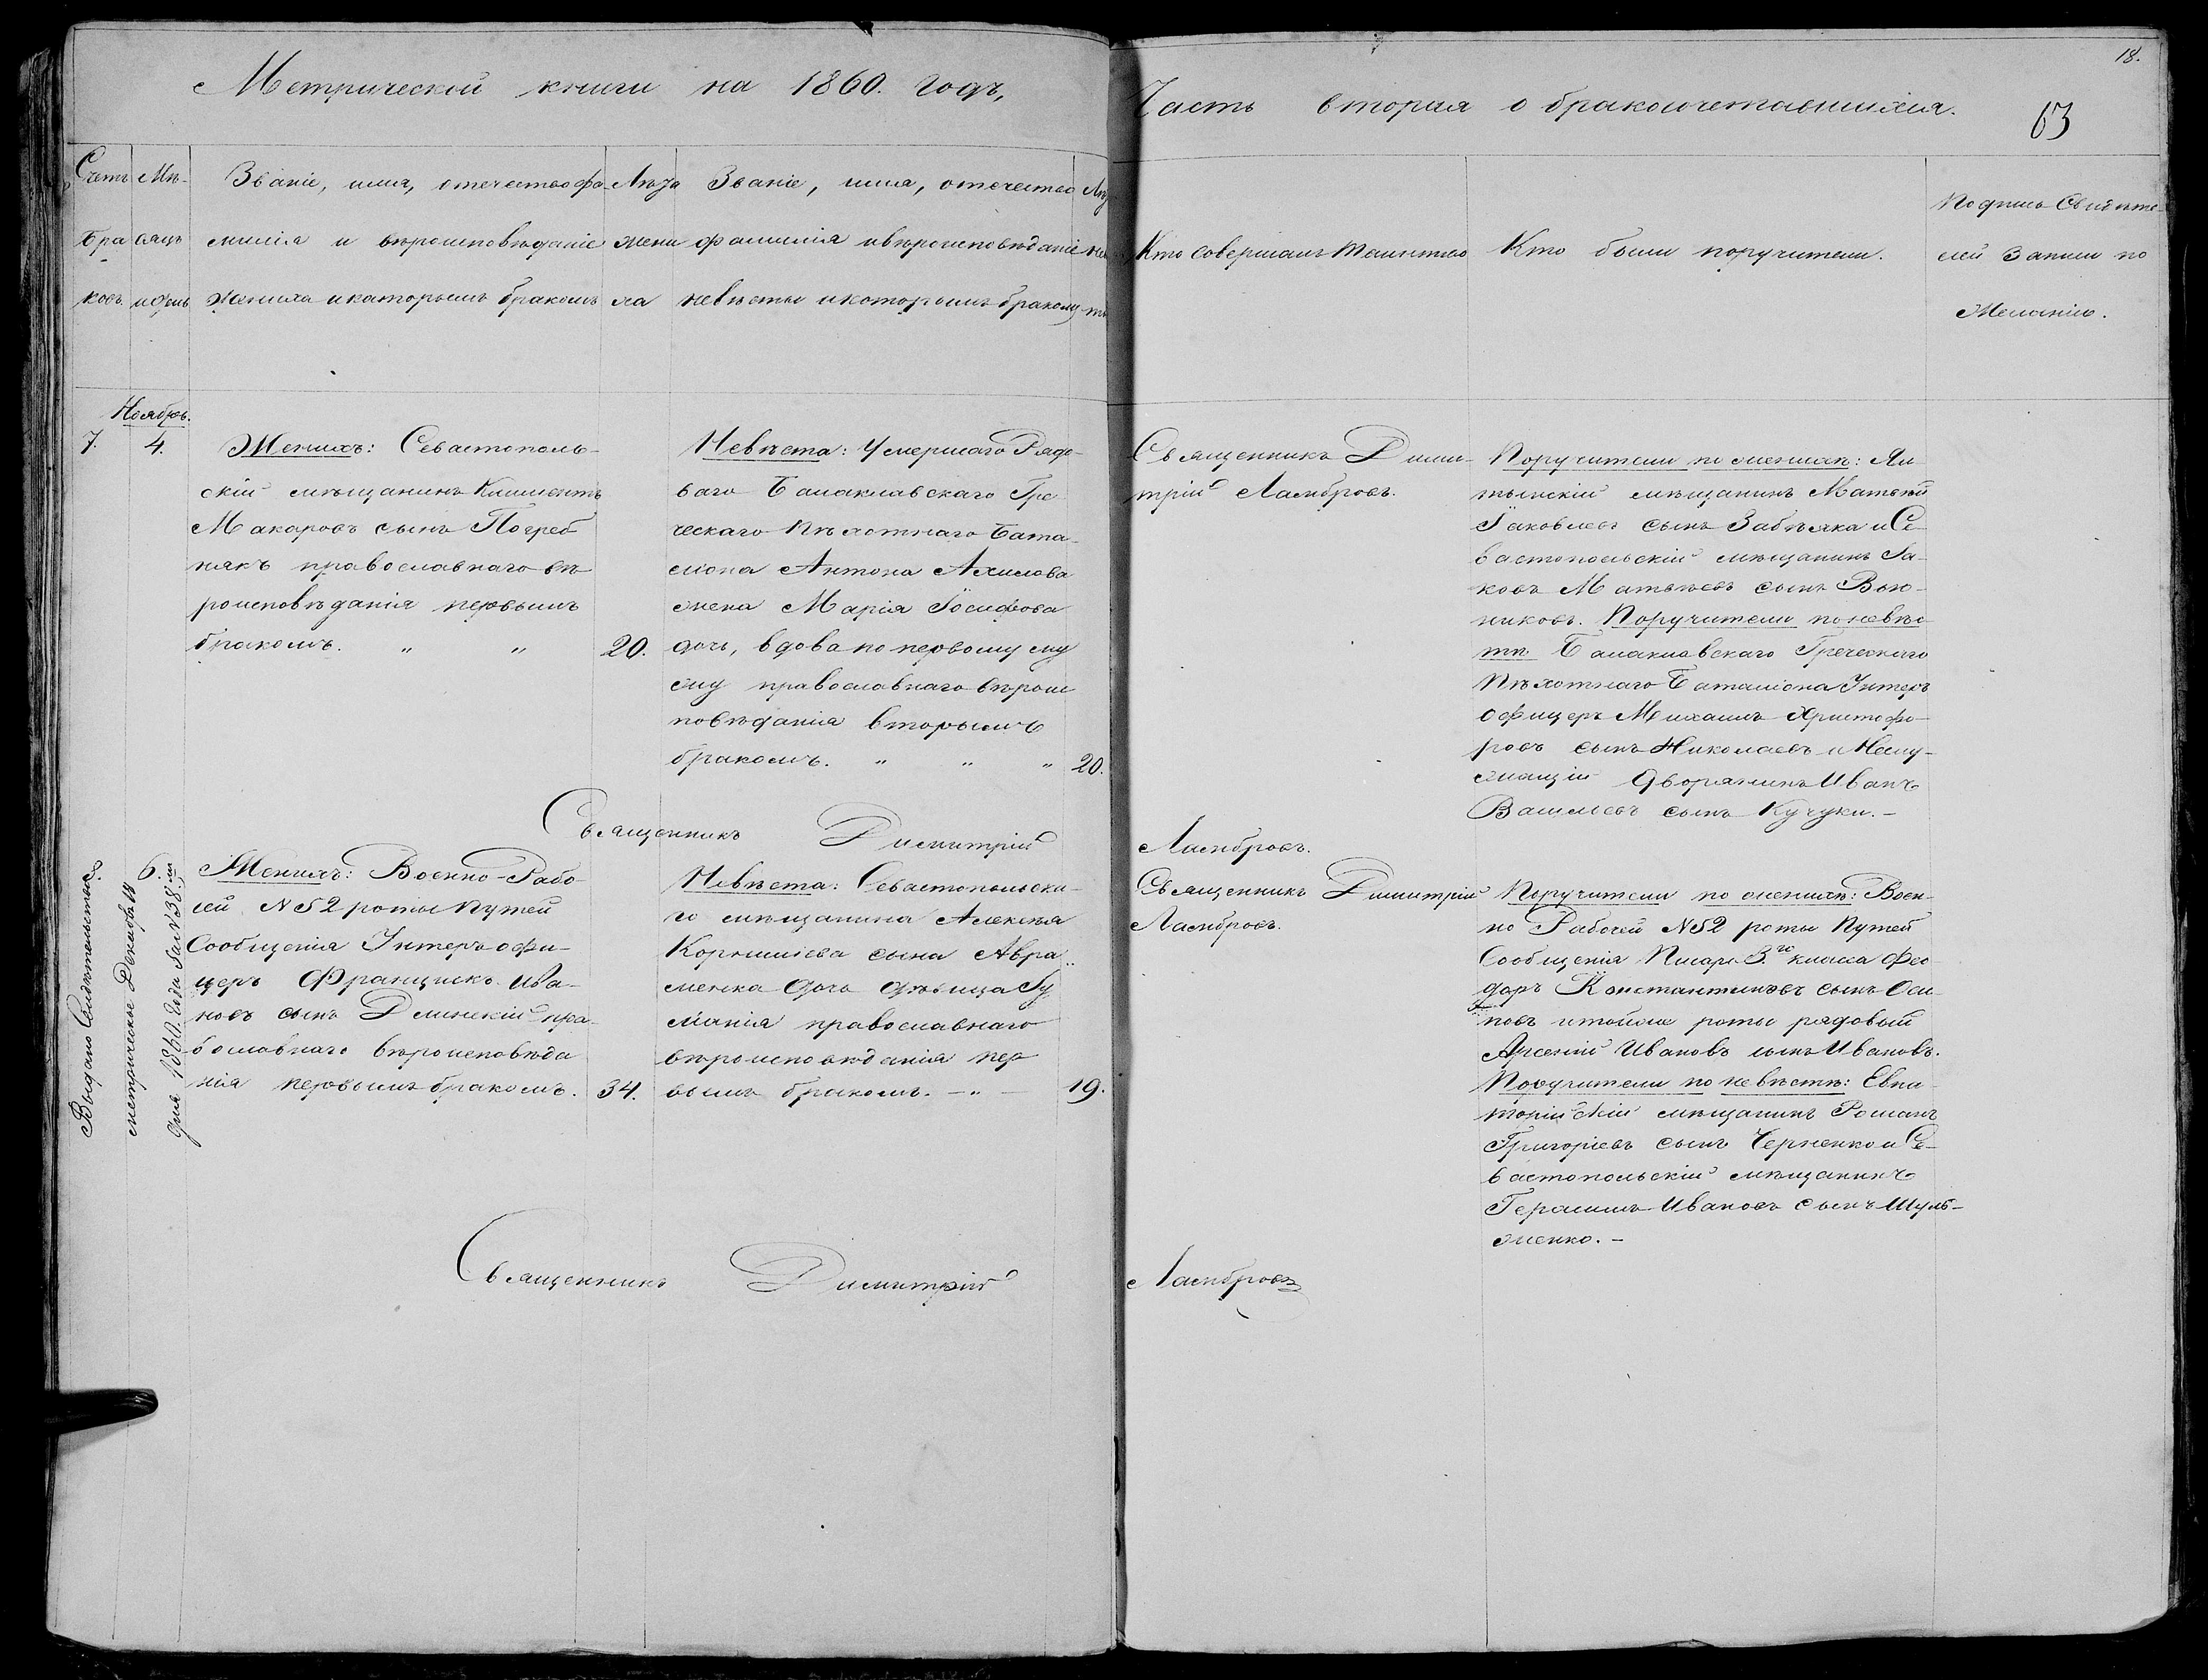 Метрической книги на 1860. годъ,
Часть вторая о бракосочетавшихся.
18.
63
Счетъ бра ковъ.
Мѣ- сяцъ и день
Званіе, имя, отечество фа-
милія и вѣроисповѣданіе
жениха и каторымъ бракомъ
Лѣта
жени
ха
Званіе, имя, отечество
фамилія и вѣроисповѣданіе
невѣсты и которымъ бракомъ
Кто совершалъ таинство
Кто были поручители.
Подпись свидѣте-
лей записи по
желанію.
Ноябрь.
7. 4.
Женихъ: Севастополь-
скій мѣщанинъ Климентъ
Макаровъ сынъ Погреб
някъ православнаго вѣ
роисповѣданія первымъ
бракомъ. " " 20.
Невѣста: Умершаго Рядо-
ваго Балаклавскаго Гре
ческаго Пѣхотнаго Бата-
ліона Антона Ахилова
жена Марія Іосифова
дочь, вдова по первому му
жу православнаго вѣроис
повѣданія вторымъ
бракомъ. " " " 20.
Священникъ Дими-
трій Ламбровъ.
Поручители по женихѣ: Ял-
тынскій мѣщанинъ Матвѣй
Іаковлевъ сынъ Забѣяка и Се-
вастопольскій мѣщанинъ Іа-
ковъ Матвѣевъ сынъ Вою-
никовъ. Поручители по невѣс
тѣ Балаклавскаго Греческаго
Пѣхотнаго Баталіона Унтеръ
офицеръ Михаилъ Христофо-
ровъ сынъ Николаевъ и Неслу-
жащій дворянинъ Иванъ
Васильевъ сынъ Кучуки.-
Священникъ Димитрій Ламбровъ.
Выдано Свидѣтельство
метрическое Декабря 14
дня 1860. года за №38.мъ
6.
Женихъ: Военно-Рабо-
чей №52 роты Путей
Сообщенія Унтеръ офи-
церъ Францискъ Ива-
новъ сынъ Длинскій пра-
вославнаго вѣроисповѣда
нія первымъ бракомъ. 34.
Невѣста: Севастопольска-
го мѣщанина Алексѣя
Корнилиева сына Авра
менка дочь дѣвица Іу
лианія православнаго
вѣроисповѣданія пер
вымъ бракомъ. -"- 19.
Священникъ Димитрій
Ламбровъ.
Поручители по женихѣ: Воен-
но Рабочей №52 роты Путей
Сообщенія Писарь 3.го класса Фео
доръ Константиновъ сынъ Оси
повъ и тойже роты рядовый
Арсеній Ивановъ сынъ Ивановъ.
Поручители по невѣстѣ: Евпа-
торійскій мѣщанинъ Романъ
Григоріевъ сынъ Черненко и Се-
вастопольскій мѣщанинъ
Герасимъ Ивановъ сынъ Шуль-
женко.-
Священникъ Димитрій Ламбровъ